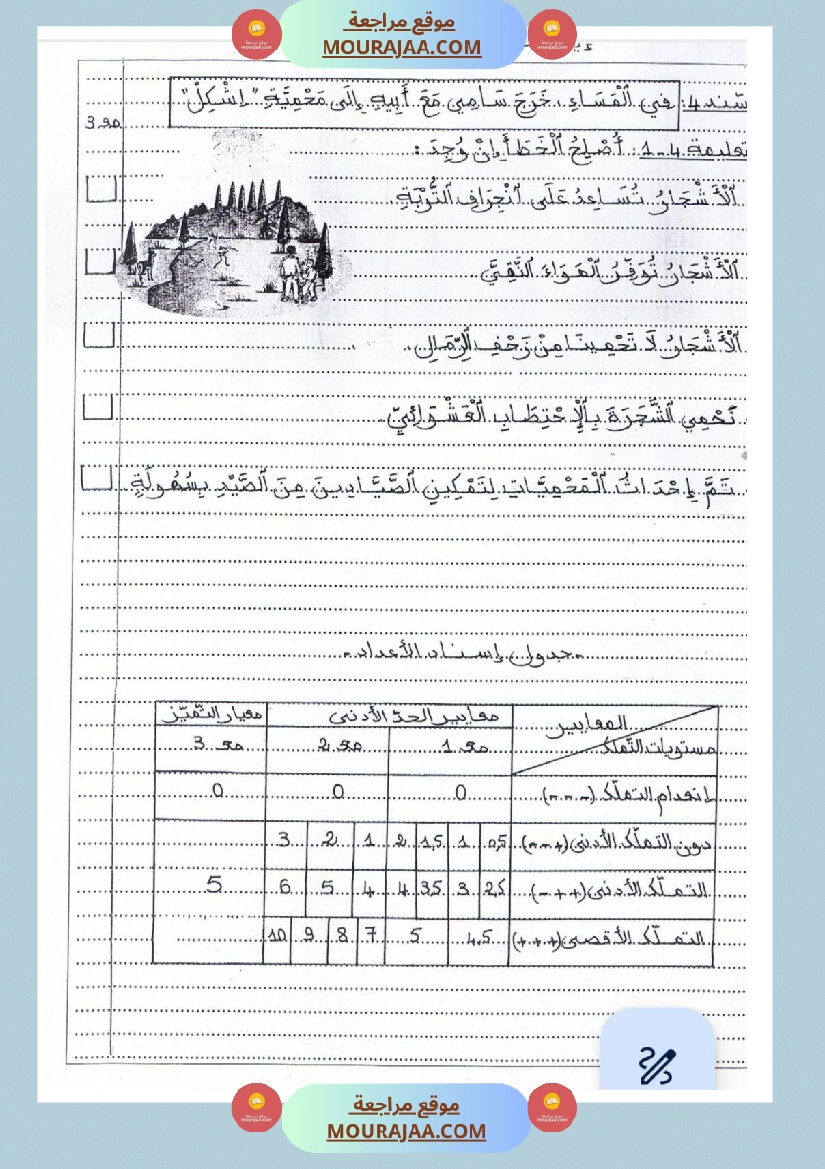 موقع مراجعة
MOURAJAA.COM
سند 4: فِي الْمَسَاءِ، خَرَجَ سَامِي مَعَ أَبِيهِ إِلَى مَحْمِيَّةِ "إِشْكِلْ"
مع 3
تعليمة 4-1: أُصْلِحُ الْخَطَأَ إِنْ وُجِدَ:
الْأَشْجَارُ تُسَاعِدُ عَلَى انْجِرَافِ التُّرْبَةِ.
الْأَشْجَارُ تُوَفِّرُ الْهَوَاءَ النَّقِيَّ
الْأَشْجَارُ لَا تَحْمِينَا مِنْ زَحْفِ الرِّمَالِ.
نَحْمِي الشَّجَرَةَ بِالْاِحْتِطَابِ الْعَشْوَائِيِّ
تَمَّ إِحْدَاثُ الْمَحْمِيَّاتِ لِتَمْكِينِ الصَّيَّادِينَ مِنَ الصَّيْدِ بِسُهُولَةٍ
جدول إسناد الأعداد
المعايير معايير الحدّ الأدنى معيار التميّز
مستويات التملك مع 1 مع 2 مع 3
انعدام التملّك (---) 0 0 0
دون التملّك الأدنى (+--) 0,5 1 1,5 2 1 2 3
التملّك الأدنى (++-) 2,5 3 3,5 4 4 5 6 5
التملّك الأقصى (+++) 4,5 5 7 8 9 10
موقع مراجعة
MOURAJAA.COM